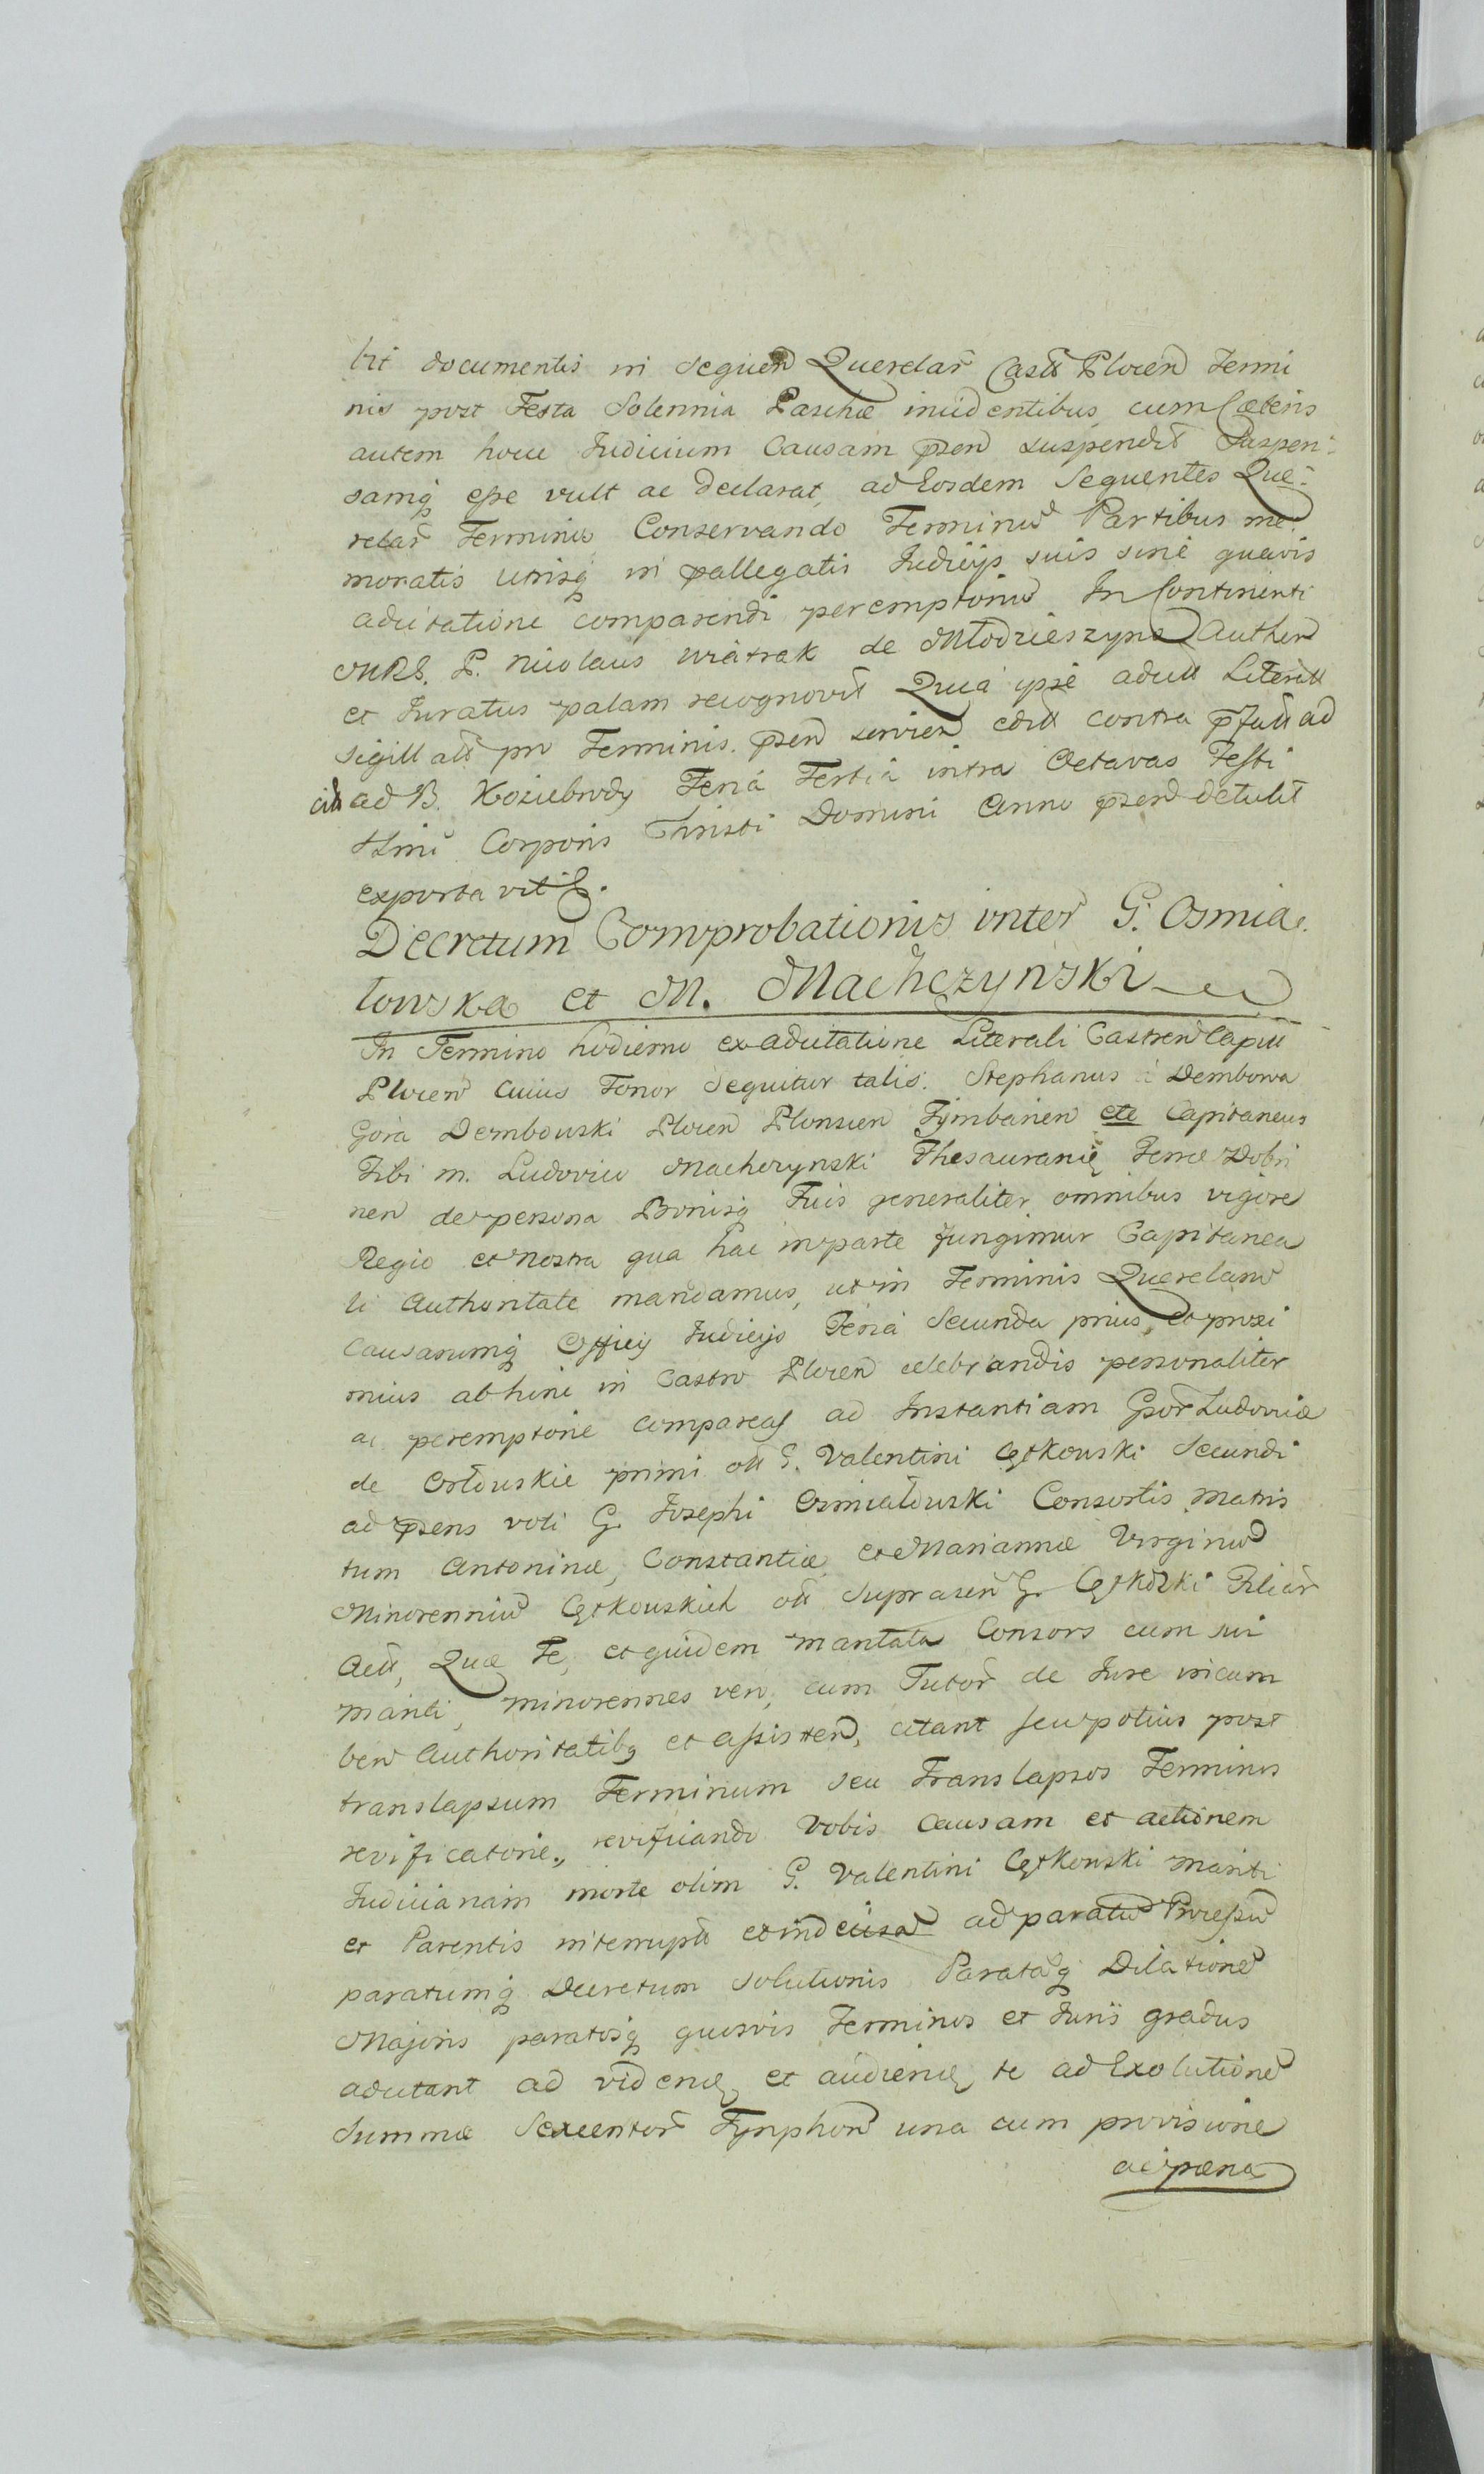 bit documentis in sequen Querelar Castr Plocen Termi
nis post Festa Solennia Paschæ incidentibus, cum Cæteris
autem hocce Iudicium Causam psen suspendit Suspen:
samq esse vult ac declarat, ad Eosdem Sequentes Que:
relar Terminos Conservando Terminu Partibus me:
moratis utrisq in pallegatis Iudicijs suis sine quavis
adcitatione comparendi peremptoriu In Continenti
MRS. P. Nicolaus Wiatrak de Młodzieszyno Authen
et Iuratus palam recognovit Quia ipse adcitt Literitt
Sigill att pro Terminis psen servien editt contra pfatt ad
cit ad B. Koziebrody Feria Tertia intra Octavas Festi
Ssmi Corporis Christi Domini Anno psen detulit
exportavit &.
Decretum Comprobationis inter G. Osmia
lowska et M. Machczynski
In Termino hodierno ex adcitatione Literali Castren Capitt
Plocen cuius Tenor Sequitur talis. Stephanus à Dembowa
Gora Dembowski Plocen Plonscen Tymbarien etc Capitaneus
Tibi m. Ludovico Machczynski Thesaurario Terræ Dobri
nen de persona Bonisq Tuis generaliter omnibus vigore
Regio et Nostra qua hac in parte fungimur Capitanea
li Authoritate mandamus, ut in Terminis Querelaru
Causarumq Officij Iudicijs Feria Secunda prius, et proxi
mius abhinc in Castro Plocen celebrandis personaliter
ac peremptorie compareas ad Instantiam Gsor Ludovicæ
de Orłowskie primi ott G. Valentini Cętkowski Secundi
ad psens voti G. Iosephi Osmiałowski Consortis Matris
tum Antoninæ, Constantiæ et Mariannæ Virginu
Minorenniu Cętkowskich ott Suprascn G. Cętkowski Filiar
Actt, Quæ Te, et quidem maritata Consors cum sui
mariti, minorennes vero, cum Tutor de Iure incum
ben Authoritatibq et assisten, citant seu potius post
translapsum Terminum seu Translapsos Terminos
revificatorie, revificando Vobis Causam et actionem
Iudiciariam morte olim G. Valentini Cętkowski Mariti
et Parentis interruptt et indecisa ad paratu Processu
paratumq Decretum Solutionis Parataq Dilatione
Majoris paratosq quosvis Terminos et Iuris gradus
adcitant ad videndu et audiendu te ad Exolutione
Summæ Sexcentor Tynphon una cum provisione
ac pæna